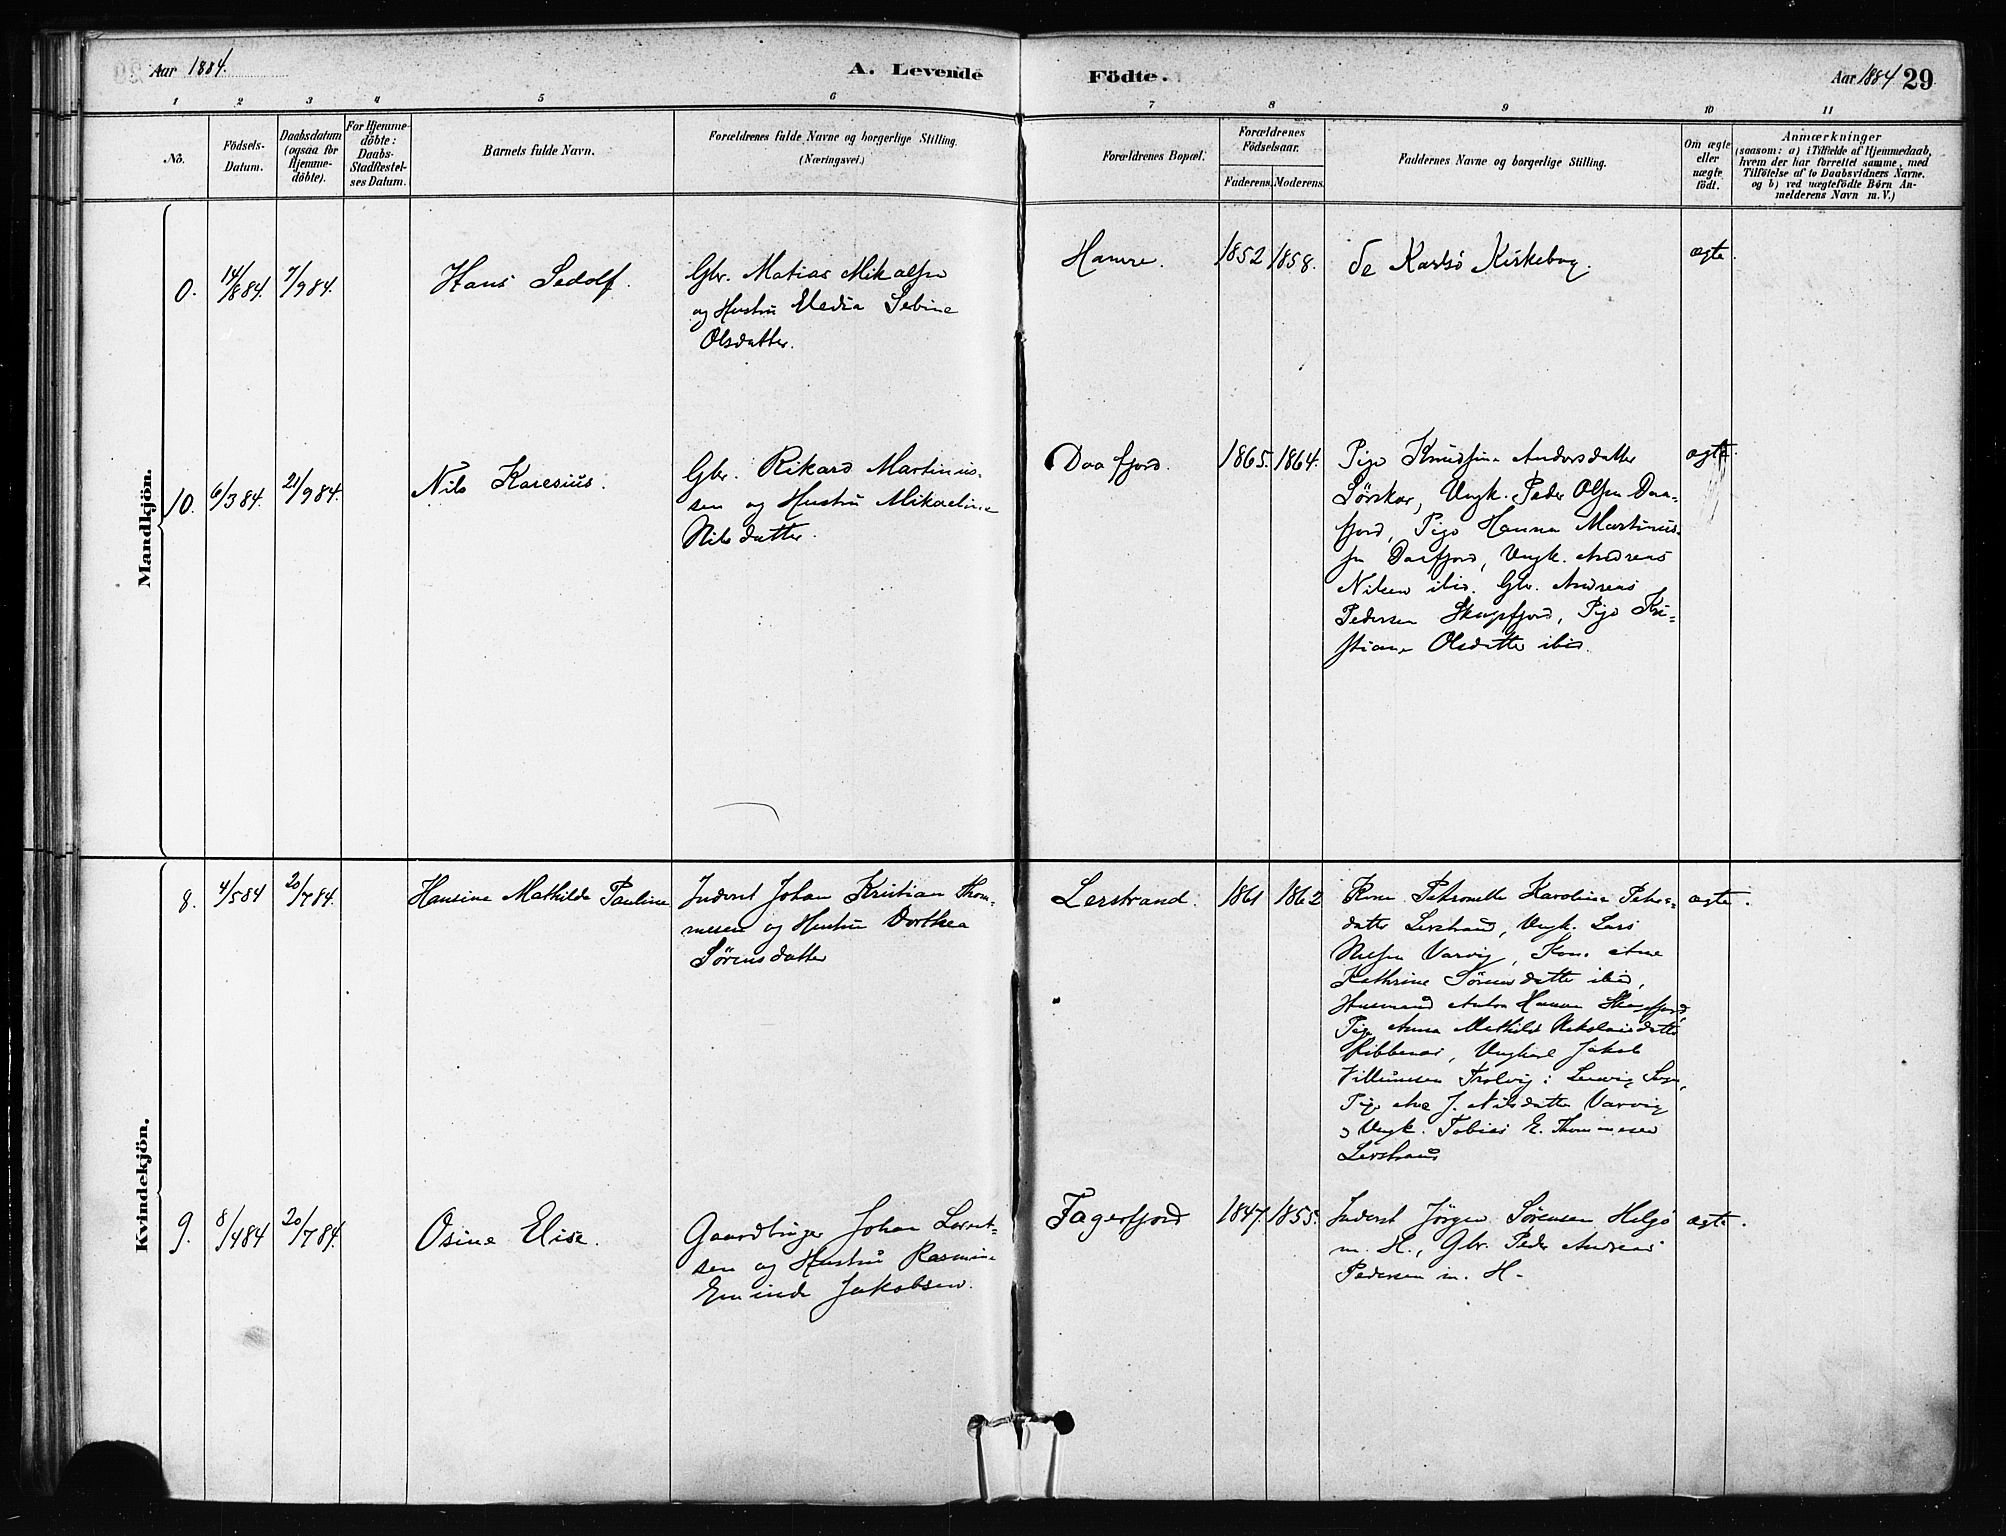 Aar 1884.
A. Levende Födte.
Aar 1884 29
1 2 3 4 5 6 7 8 9 10 11
No.
Födsels-
Datum.
Daabsdatum
(ogsaa for
Hjemme-
döbte).
For Hjemme-
döbte:
Daabs-
Stadfæstel-
ses Datum.
Barnets fulde Navn.
Forældrenes fulde Navne og borgerlige Stilling.
(Næringsvei.)
Forældrenes Bopæl.
Forældrenes
Födselsaar.
Faderens. Moderens.
Faddernes Navne og borgerlige Stilling.
Om ægte
eller
uægte
født.
Anmærkninger
(saasom: a) i Tilfælde af Hjemmedaab,
hvem der har forrettet samme, med
Tilföielse af to Daabsvidners Navne.
og b) ved uægtefödte Börn An-
melderens Navn m. V.)
Mandkjön.
0. 14/8 84. 7/9 84. Hans Sedolf.
Gbr. Matias Mikalsen
og Hustru Eledia Sebine
Olsdatter.
Hamre. 1852 1858. Se Karlsö Kirkebog. ægte.
10. 6/3 84. 21/9 84. Nils Karesius.
Gbr. Rikard Martinus-
sen og Hustru Mikaeline
Nilsdatter.
Daafjord. 1865. 1864.
Pige Knudsine Andersdatter
Sørskar, Ungk. Peder Olsen Daa-
fjord, Pige Hanna Martinus-
sen Daafjord, Ungk. Andreas
Nilsen ibid. Gbr. Andreas
Pedersen Skogsfjord, Pige Kri-
stiane Olsdatter ibid.
ægte.
Kvindekjön.
8. 4/5 84 20/7 84. Hansine Mathilde Pauline
Inderst Johan Kristian Thom-
mesen og Hustru Dorthea
Sørensdatter
Lerstrand. 1861 1862
Kone Petronelle Karoline Peders-
datter Lerstrand, Ungk. Lars
Nilsen Varvig, Kone Ane
Kathrine Sørensdatter ibid,
Husmand Anton Hansen
Pige Anna Mathilde Nikolaisdatter
Ribbenes, Ungkarl Jakob
Villumsen Trolvig i Lenvig Sogn,
Pige Ane J. Nilsdatter Varvig
og Ungk. Tobias E. Thommesen
Lerstrand
ægte.
9. 8/4 84 20/7 84. Osine Elise.
Gaardbruger Johan Lorent-
sen og Hustru Rasmine
Eminde Jakobsen.
Fagerfjord 1847. 1855.
Inderst Jörgen Sørensen Helgö
m. H., Gbr. Peder Andreas
Pedersen m. H.
ægte.